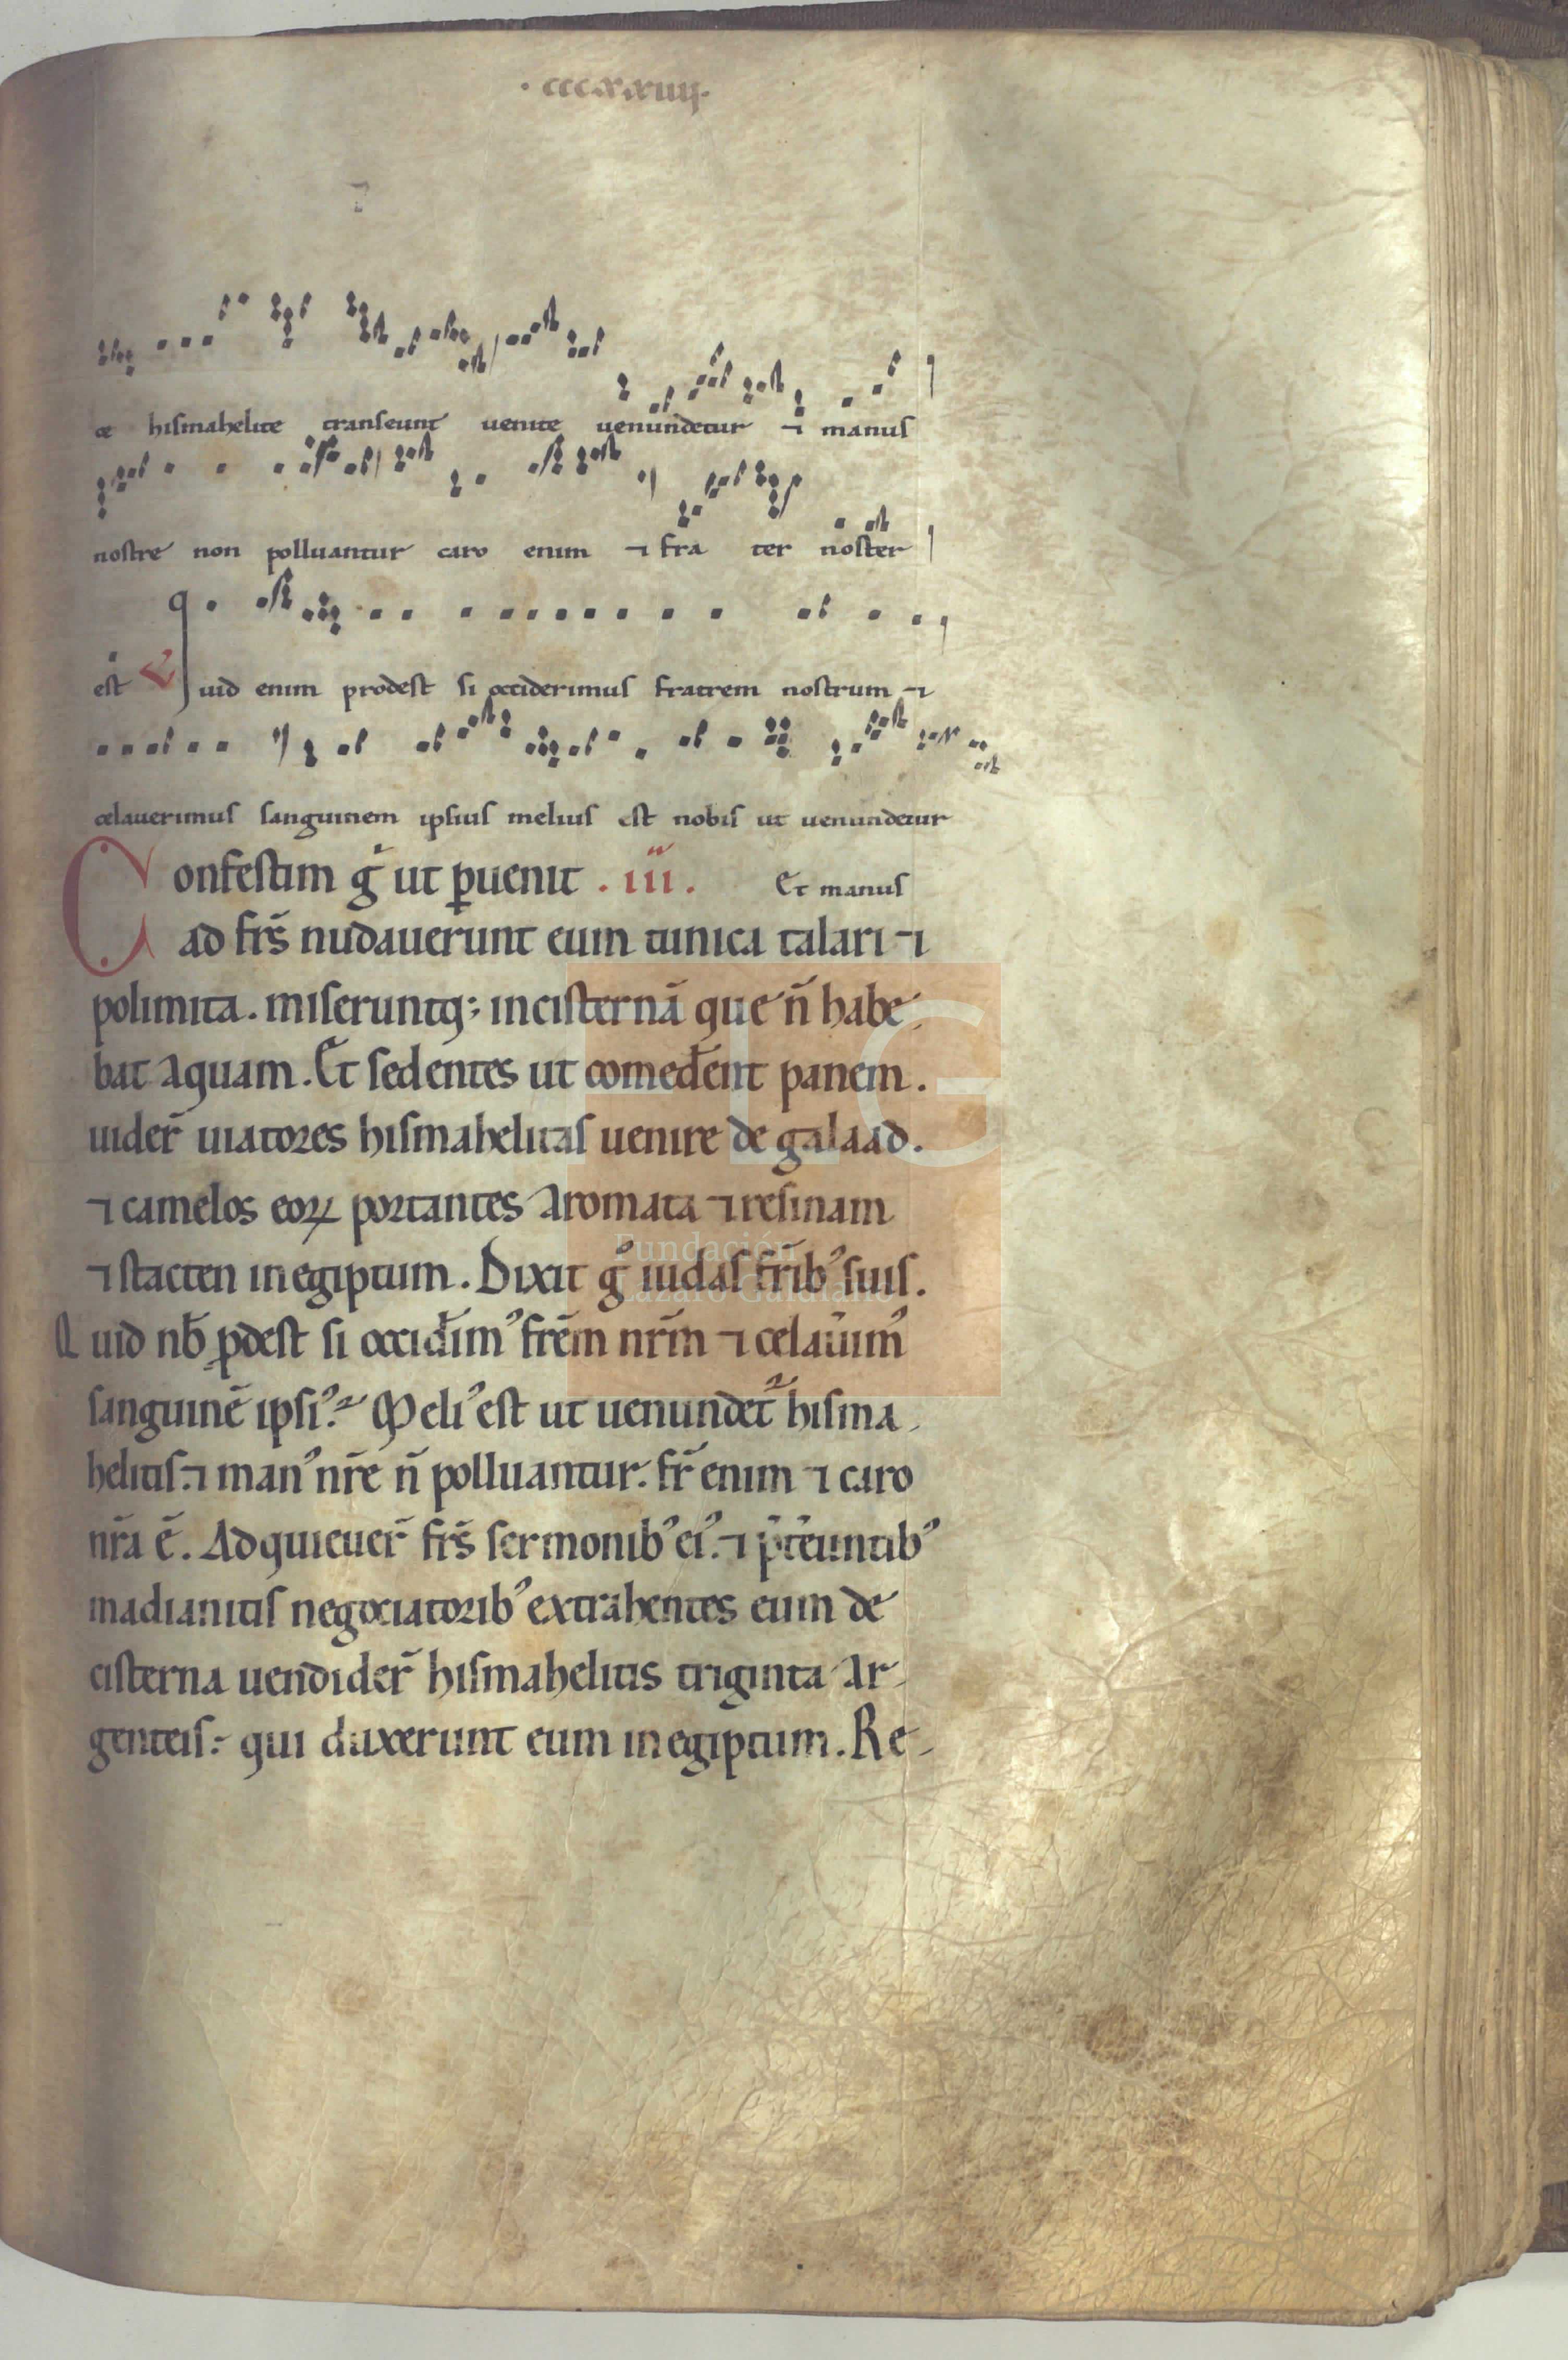 ·cccxxiiij·
ce hiſmahelite tranſeunt uenite uenundetur ⁊ manuſ
noſtre non polluantur caro enim ⁊ fra ter noſter
eſt Quid enim prodeſt ſi occiderimuſ fratrem noſtrum ⁊
celauerimuſ ſanguinem ipſiuſ meliuſ eſt nobiſ ut uenundetur
Confeſtim g̊ ut ꝑuenit . iii . Et manuſ
ad fr̄s nudauerunt eum tunica talari ⁊
polimita . miſeruntq; inciſternā que n̄ habe-
bat aquam . Et ſedentes ut comeder̄ent panem .
uider̄ uiatores hiſmahelitaſ uenire de galaad .
⁊ camelos eoꝝ portantes aromata ⁊ reſinam
⁊ ſtacten in egiptum . Dixit g̊ iudaſ fr̄ib᾽ ſuiſ .
Quid nb̄ ꝓdeſt ſi occid̄im᾽ frēm nr̄m ⁊ celauīm᾽
ſanguinē ipſi᾽. Meli᾽ eſt ut uenundet᷑ hiſma-
helitiſ. ⁊ man᾽ nr̄e n̄ polluantur. fr̄ enim ⁊ caro
nr̄a ē . Adquieuer̄ fr̄s ſermonib᾽ ei᾽. ⁊ p̄t̄euntib᾽
madianitiſ negociatorib᾽ extrahentes eum de
ciſterna uendider̄ hiſmahelitis triginta ar-
genteiſ. qui duxerunt eum in egiptum . Re-
FLG
Fundación
Lázaro Galdiano